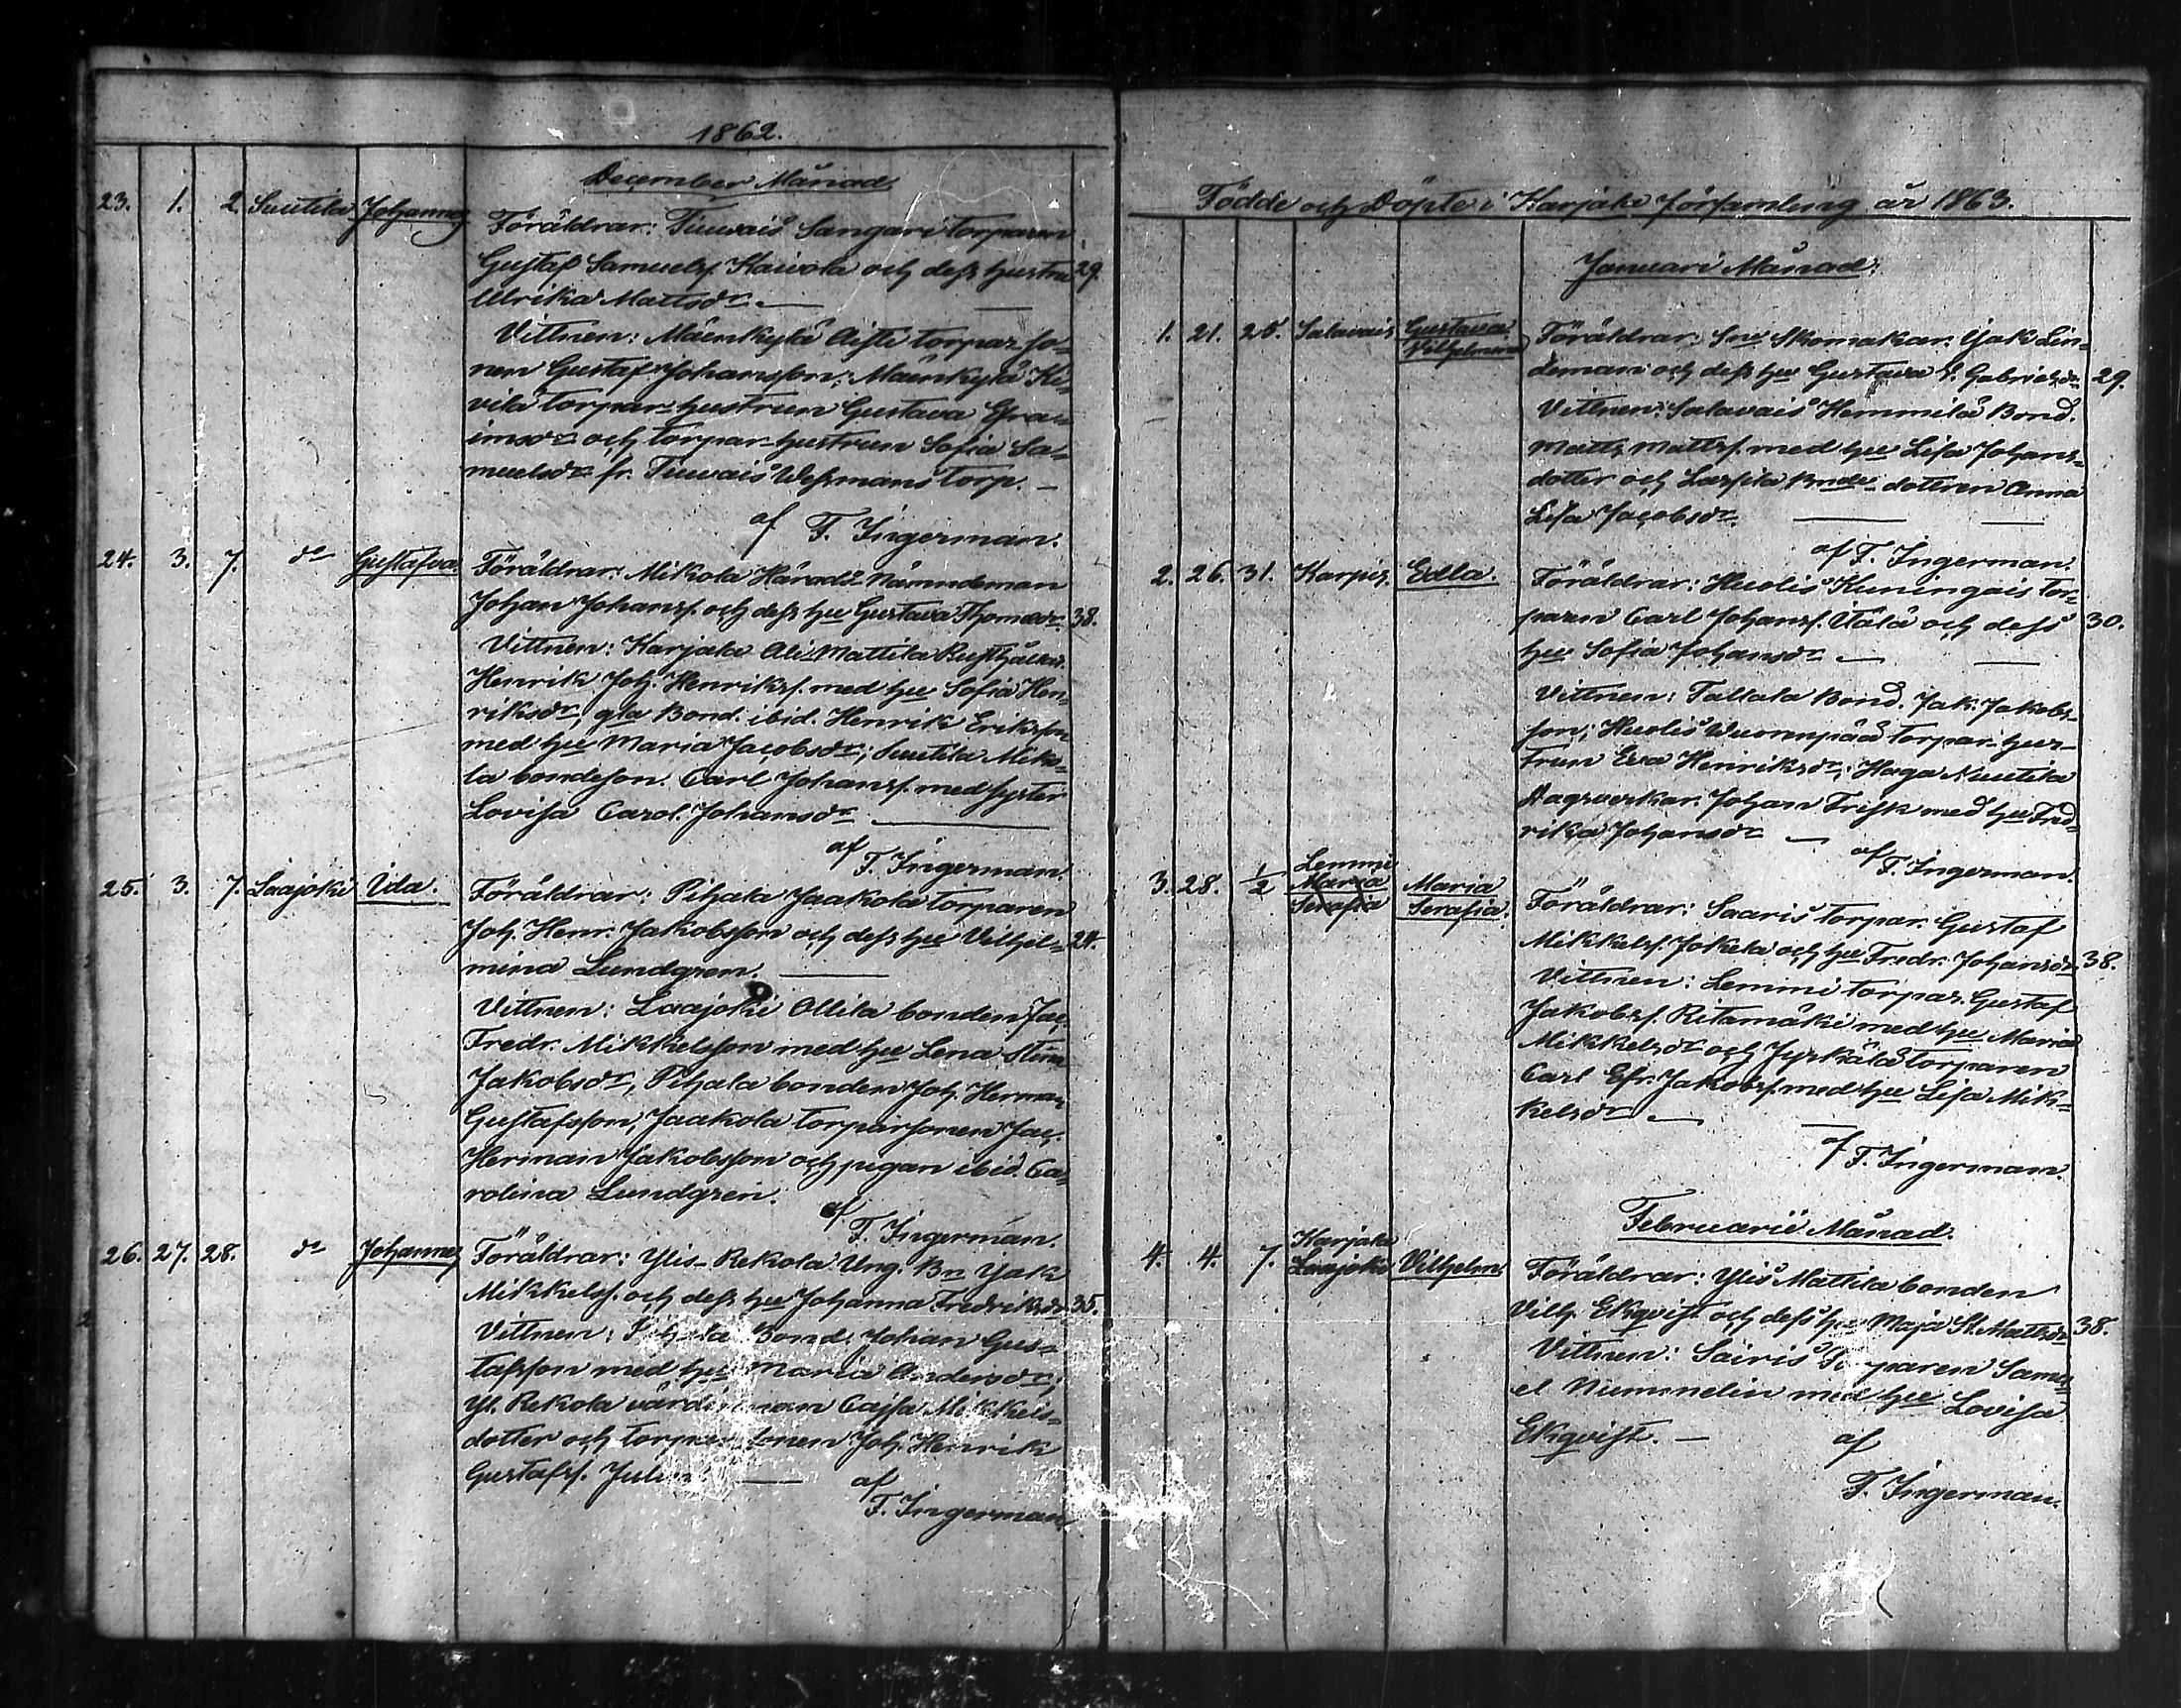 1862.
December Månad.
23. 1. 2. Suutila Johannes Föräldrar: Tiuvais Sangari torparen
Gustaf Samuelss. Kaivola och dess hustru 29.
Ulrika Mattsdr. —
Vittnen: Mäenkylä Aisti torpar-so-
nen Gustaf Johansson; Mäenkylä Ki-
vilä torpar-hustrun Gustava Efra-
imsdr och torpar-hustrun Sofia Sa-
muelsdr fr. Tiuvais Wessmans torp. —
af F. Ingerman.
24. 3. 7. do Gustafva. Föräldrar: Mikola Härads Nämndeman
Johan Johanss. och dess hu Gustava Thomasdr. 38.
Vittnen: Karjala Ali-Mattila Rusthållar.
Henrik Joh. Henrikss. med hu Sofia Hen-
riksdr; gla Bond. ibid. Henrik Eriksson
med hu Maria Jacobsdr; Suutila Miko-
la bondeson. Carl Johanss. med syster
Lovisa Carol. Johansdr —
af F. Ingerman.
25. 3. 7. Laajoki Ida. Föräldrar: Pihala Jaakola torparen
Joh. Henr. Jakobsson och dess hu Vilhel- 24.
mina Lundgren. —
Vittnen: Laajoki Ollila bonden Jac.
Fredr. Mikkelsson med hu Lena Stina
Jakobsdr, Pihala bonden Joh. Herman
Gustafsson, Jaakola torparsonen Jac.
Herman Jakobsson och pigan ibid. Ca-
rolina Lundgren.
af F. Ingerman.
26. 27. 28. do Johannes Föräldrar: Ylis-Rekola Ung. Bn Isak
Mikkelss. och dess hu Johanna Fredriksdr 35.
Vittnen: Pihala Bond. Johan Gus-
tafsson med hu Maria Andersdr;
Yl. Rekola värdinnan Cajsa Mikkels-
dotter och torparsonen Joh. Henrik
Gustafss. —
af
F. Ingerman.
Födde och Döpte i Karjala församling år 1863.
Januari Månad.
1. 21. 25. Salavais Gustava
Vilhelmina Föräldrar: Sne Skomakar. Isak Lin-
deman och dess hu Gustava L. Gabrielsdr. 29.
Vittnen: Salavais Hemmilä Bond.
Matts Mattss. med hu Lisa Johans-
dotter och Lassila Bnde dottren Anna
Lisa Jacobsdr. —
af F. Ingerman.
2. 26. 31. Karpis. Edla. Föräldrar: Huolis Kuningais tor-
paren Carl Johanss. Itälä och dess 30.
hu Sofia Johansdr —
Vittnen: Tallala Bond. Jak. Jakobs-
son; Huolis Wuorenpää torpar-hus-
trun Eva Henriksdr; Haga Nuutila
Dagsverkar. Johan Frisk med hu Fred-
rika Johansdr —
af F. Ingerman.
3. 28. 1/2 Lemmi
Maria
Serafia
Maria
Serafia. Föräldrar: Saaris torpar. Gustaf
Mikkelss. Jokela och hu Fredr. Johansdr 38.
Vittnen: Lemmi torpar. Gustaf
Jakobss. Ritamäki med hu Maria
Mikkelsdr och Jyrkälä torparen
Carl Efr. Jakobss. med hu Lisa Mik-
kelsdr —
af F. Ingerman.
Februarii Månad.
4. 4. 7. Karjala
Laajoki Vilhelm. Föräldrar: Ylis Mattila bonden
Vilh. Ekqvist och dess hu Maja St. Mattsdr 38.
Vittnen: Sairis torparen Samu-
el Nummelin med hu Lovisa
Ekqvist. —
af
F. Ingerman.